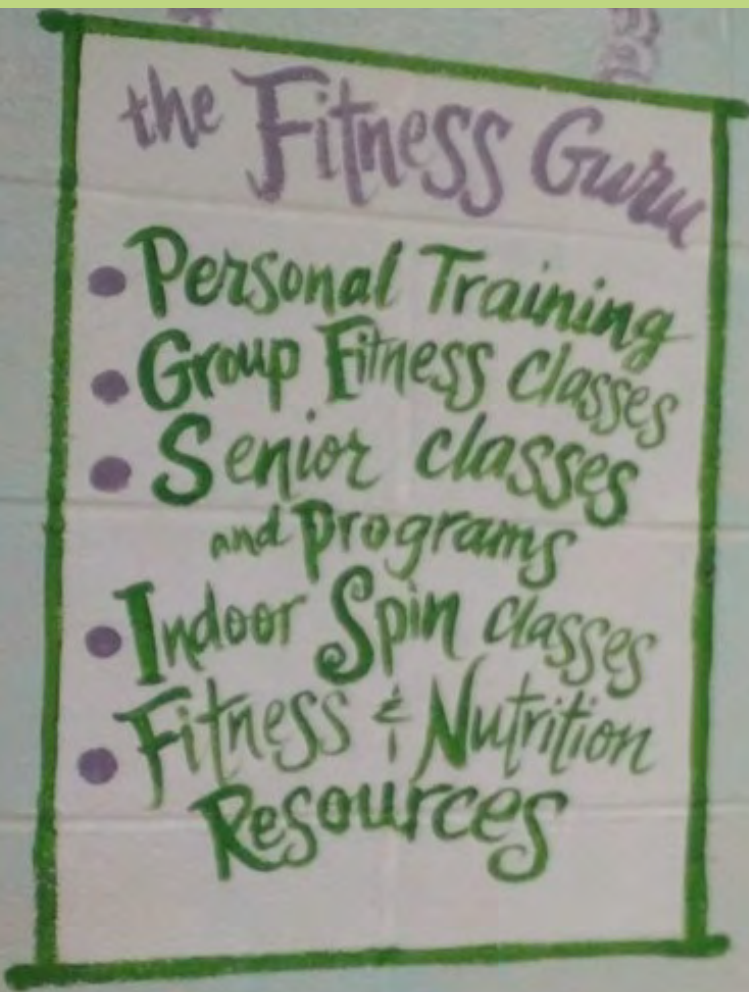 the Fitness Guru
• Personal Training
• Group Fitness classes
• Senior classes
and programs
• Indoor Spin classes
• Fitness & Nutrition
Resources